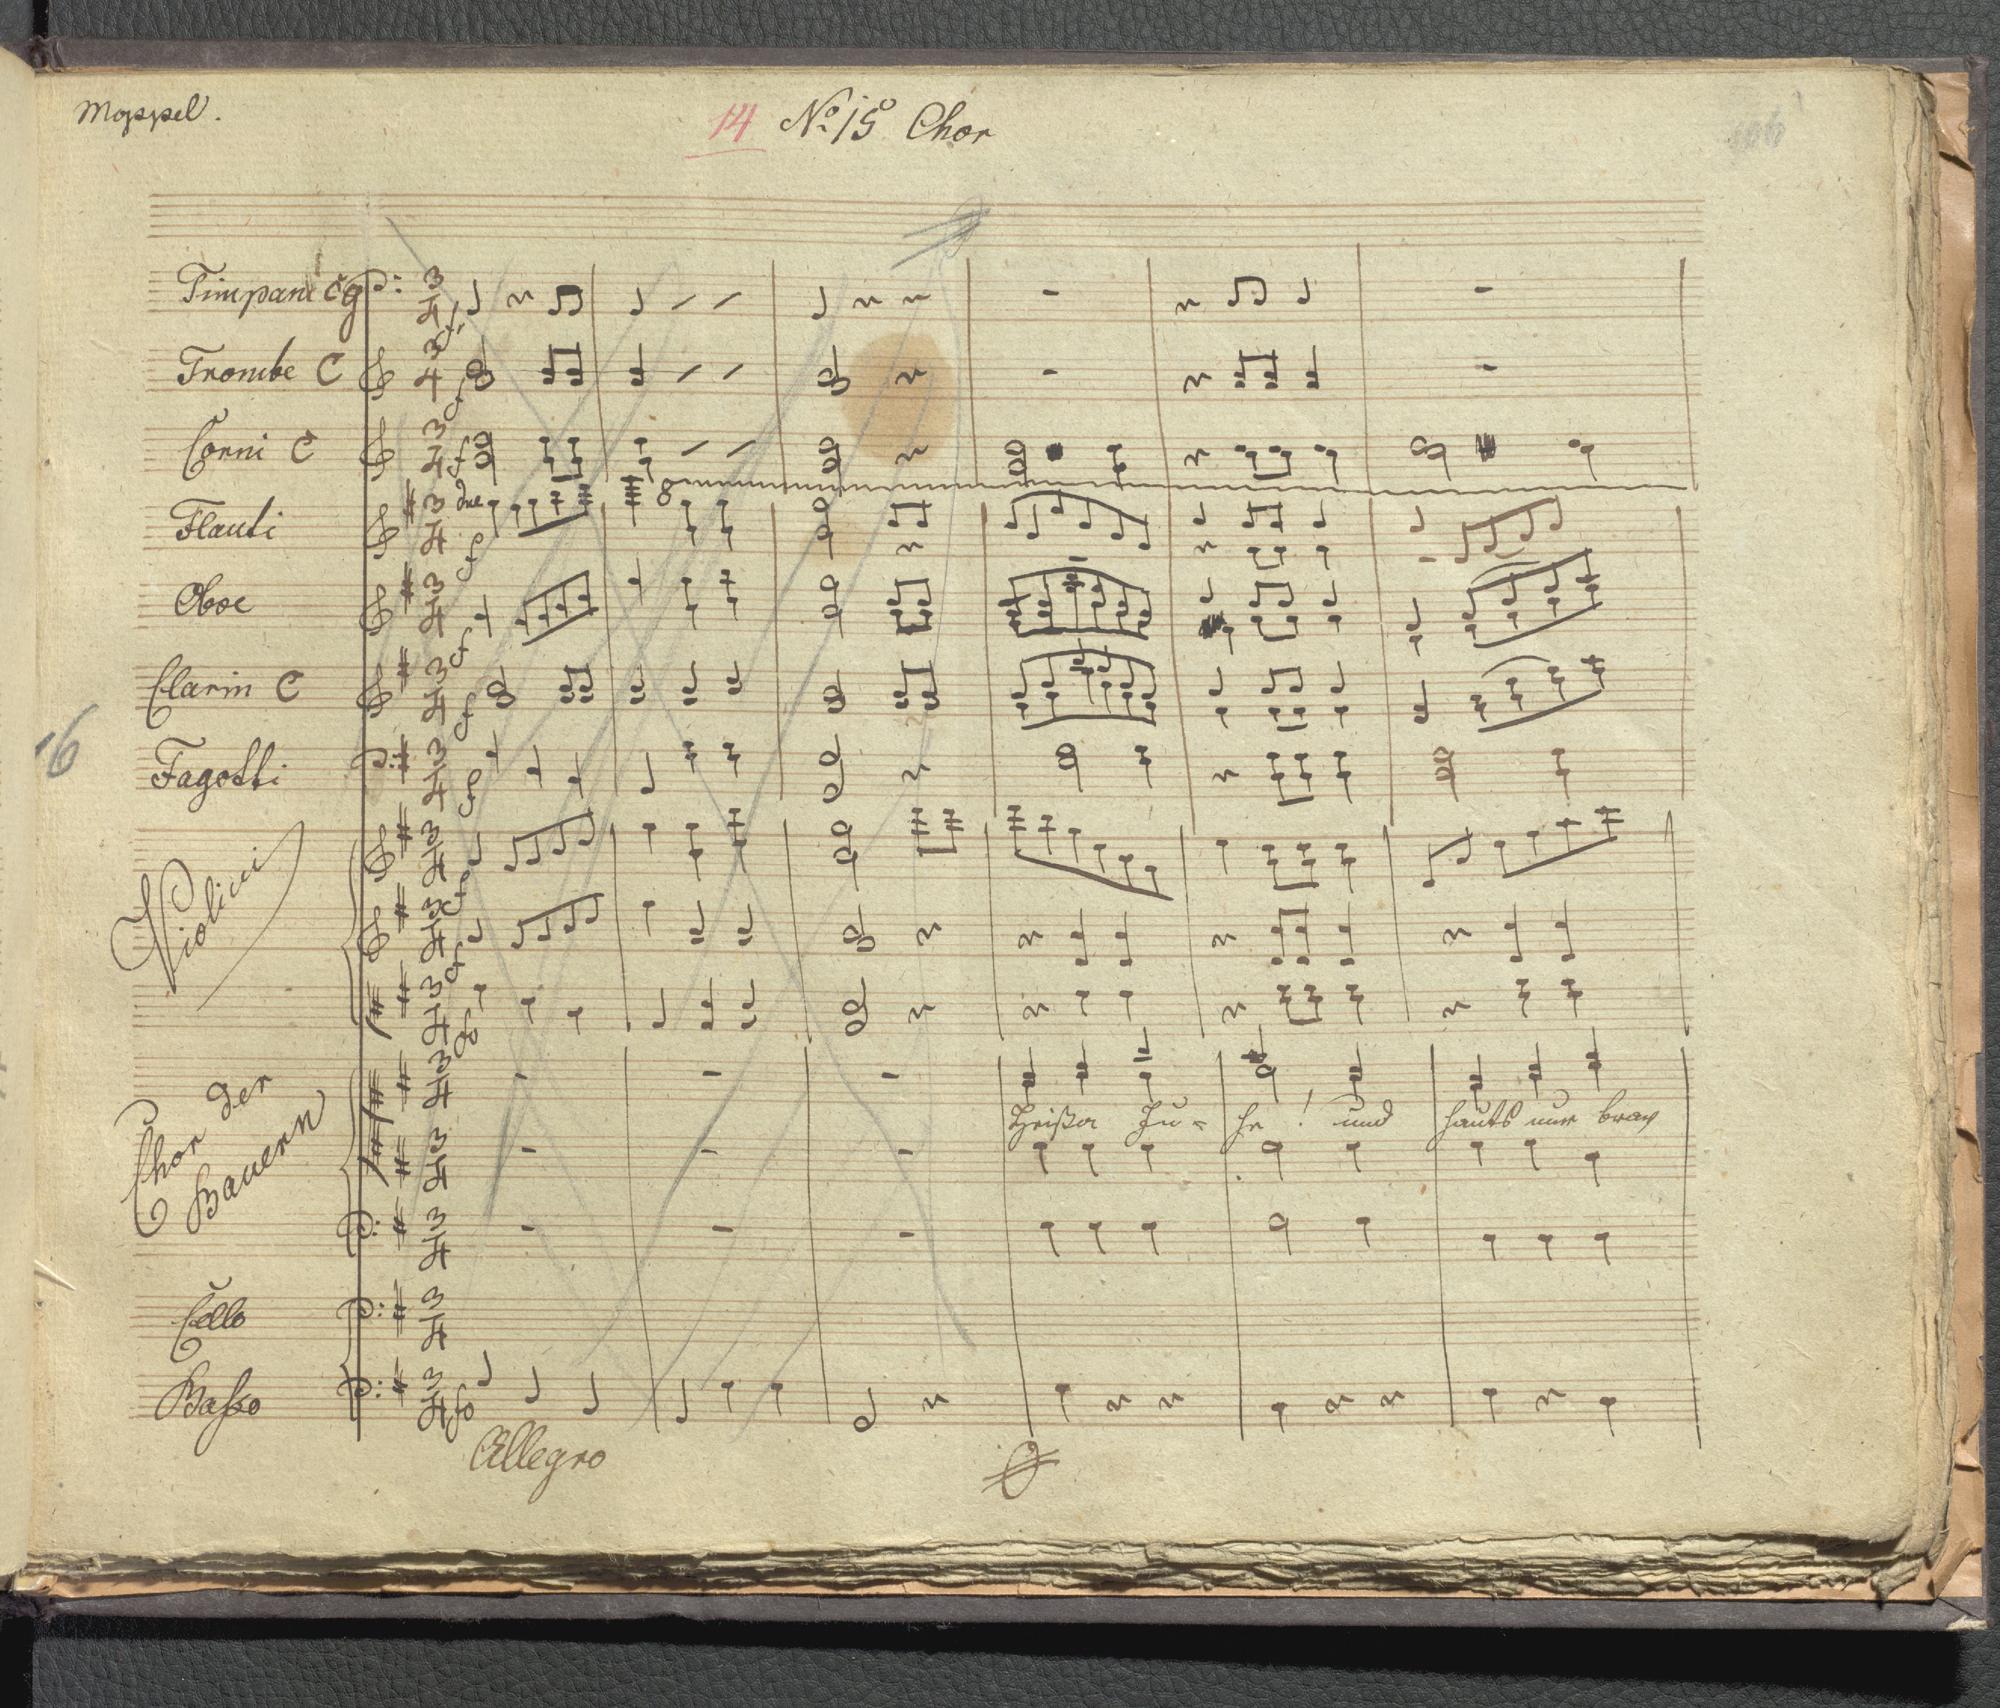 Moppel.
14 No 15 Chor
106
Timpani C g
Trombe C
Corni C
Flauti
Oboe
Clarin C
16
Fagotti
Violini
Chor der
Bauern
Heißa Ju - he ! und hauts nur brav
Cello
Baßo
Allegro